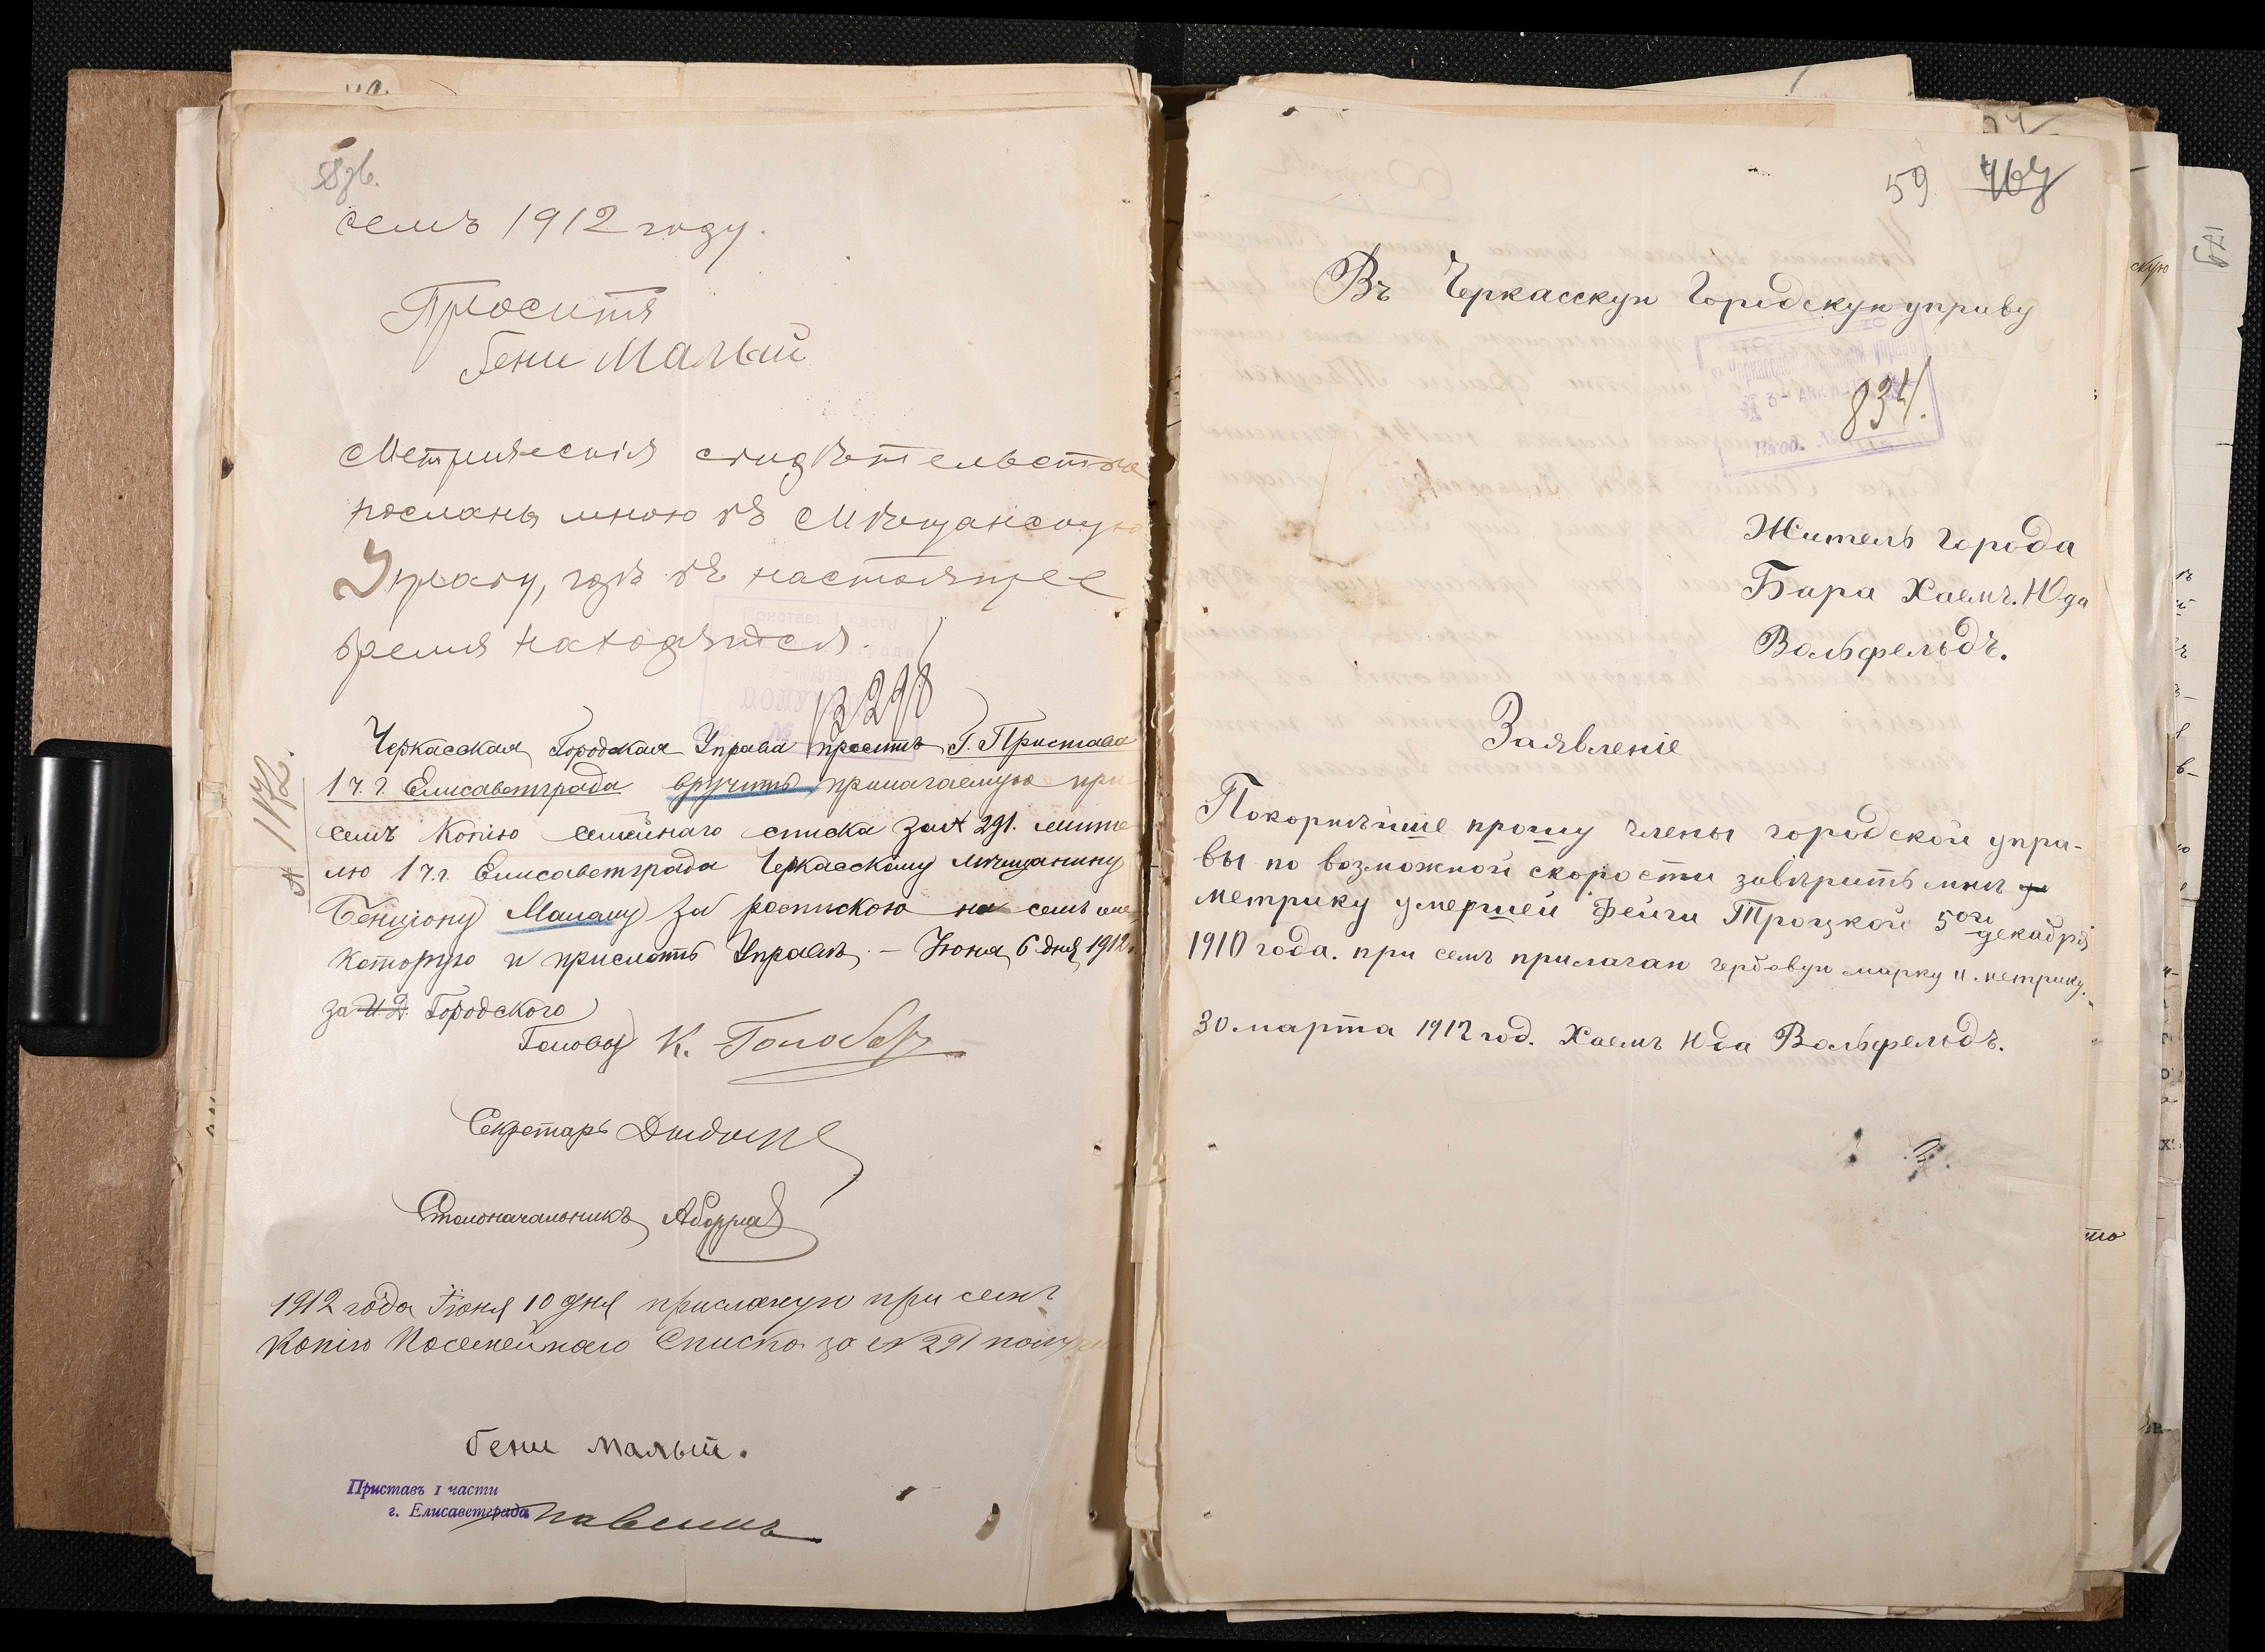 58 зв.
семъ 1912 году.
Проситъ
Бени Малый
Метрическія свидѣтельства
посланы мною въ Мѣщанскую
Управу, гдѣ въ настоящее
время находятся.
13298
№ 1172.
Черкасская Городская Управа проситъ Г. Пристава
1 ч. г. Елисаветграда вручить прилагаемую при
семъ копію семейнаго списка за № 291. жите
лю 1 ч. г. Елисаветграда Черкасскому мѣщанину
Бенціону Малому за роспискою на семъ же
которую и прислать Управѣ. – Іюня 6 дня 1912 г.
за И. Д. Городского
Головы К.
Секретарь
Столоначальникъ
1912 года Іюня 10 дня присланую при семъ
Копію Посемейнаго Списка за № 291 получ
бени малый.
Приставъ 1 части
г. Елисаветграда
59 467
Въ Черкасскую Городскую управу
834.
Вход. №
Житель города
Бара Хаемъ. Юда
Вольфельдъ.
Заявленіе
Покорнѣйше прошу члены городской упра-
вы по возможной скорости завѣрить мнѣ
метрику умершей Фейги Троцкой 5ой декабря
1910 года. при семъ прилагаю гербовую марку и метрику.
30 марта 1912 год. Хаемъ Юда Вольфельдъ.